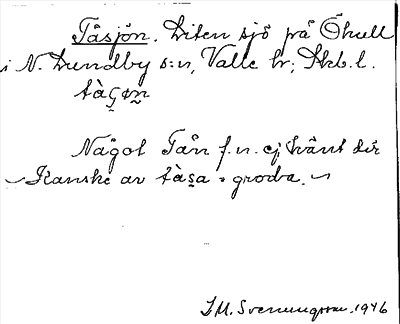 Tåsjön. Liten sjö på Öhult
i N. Lundby s:n, Valle hr; Skb. l.
tàʂøn
Något Tån f.n. ej känt där
Kanske av tàsa = groda.
I M. Svenungsson. 1946